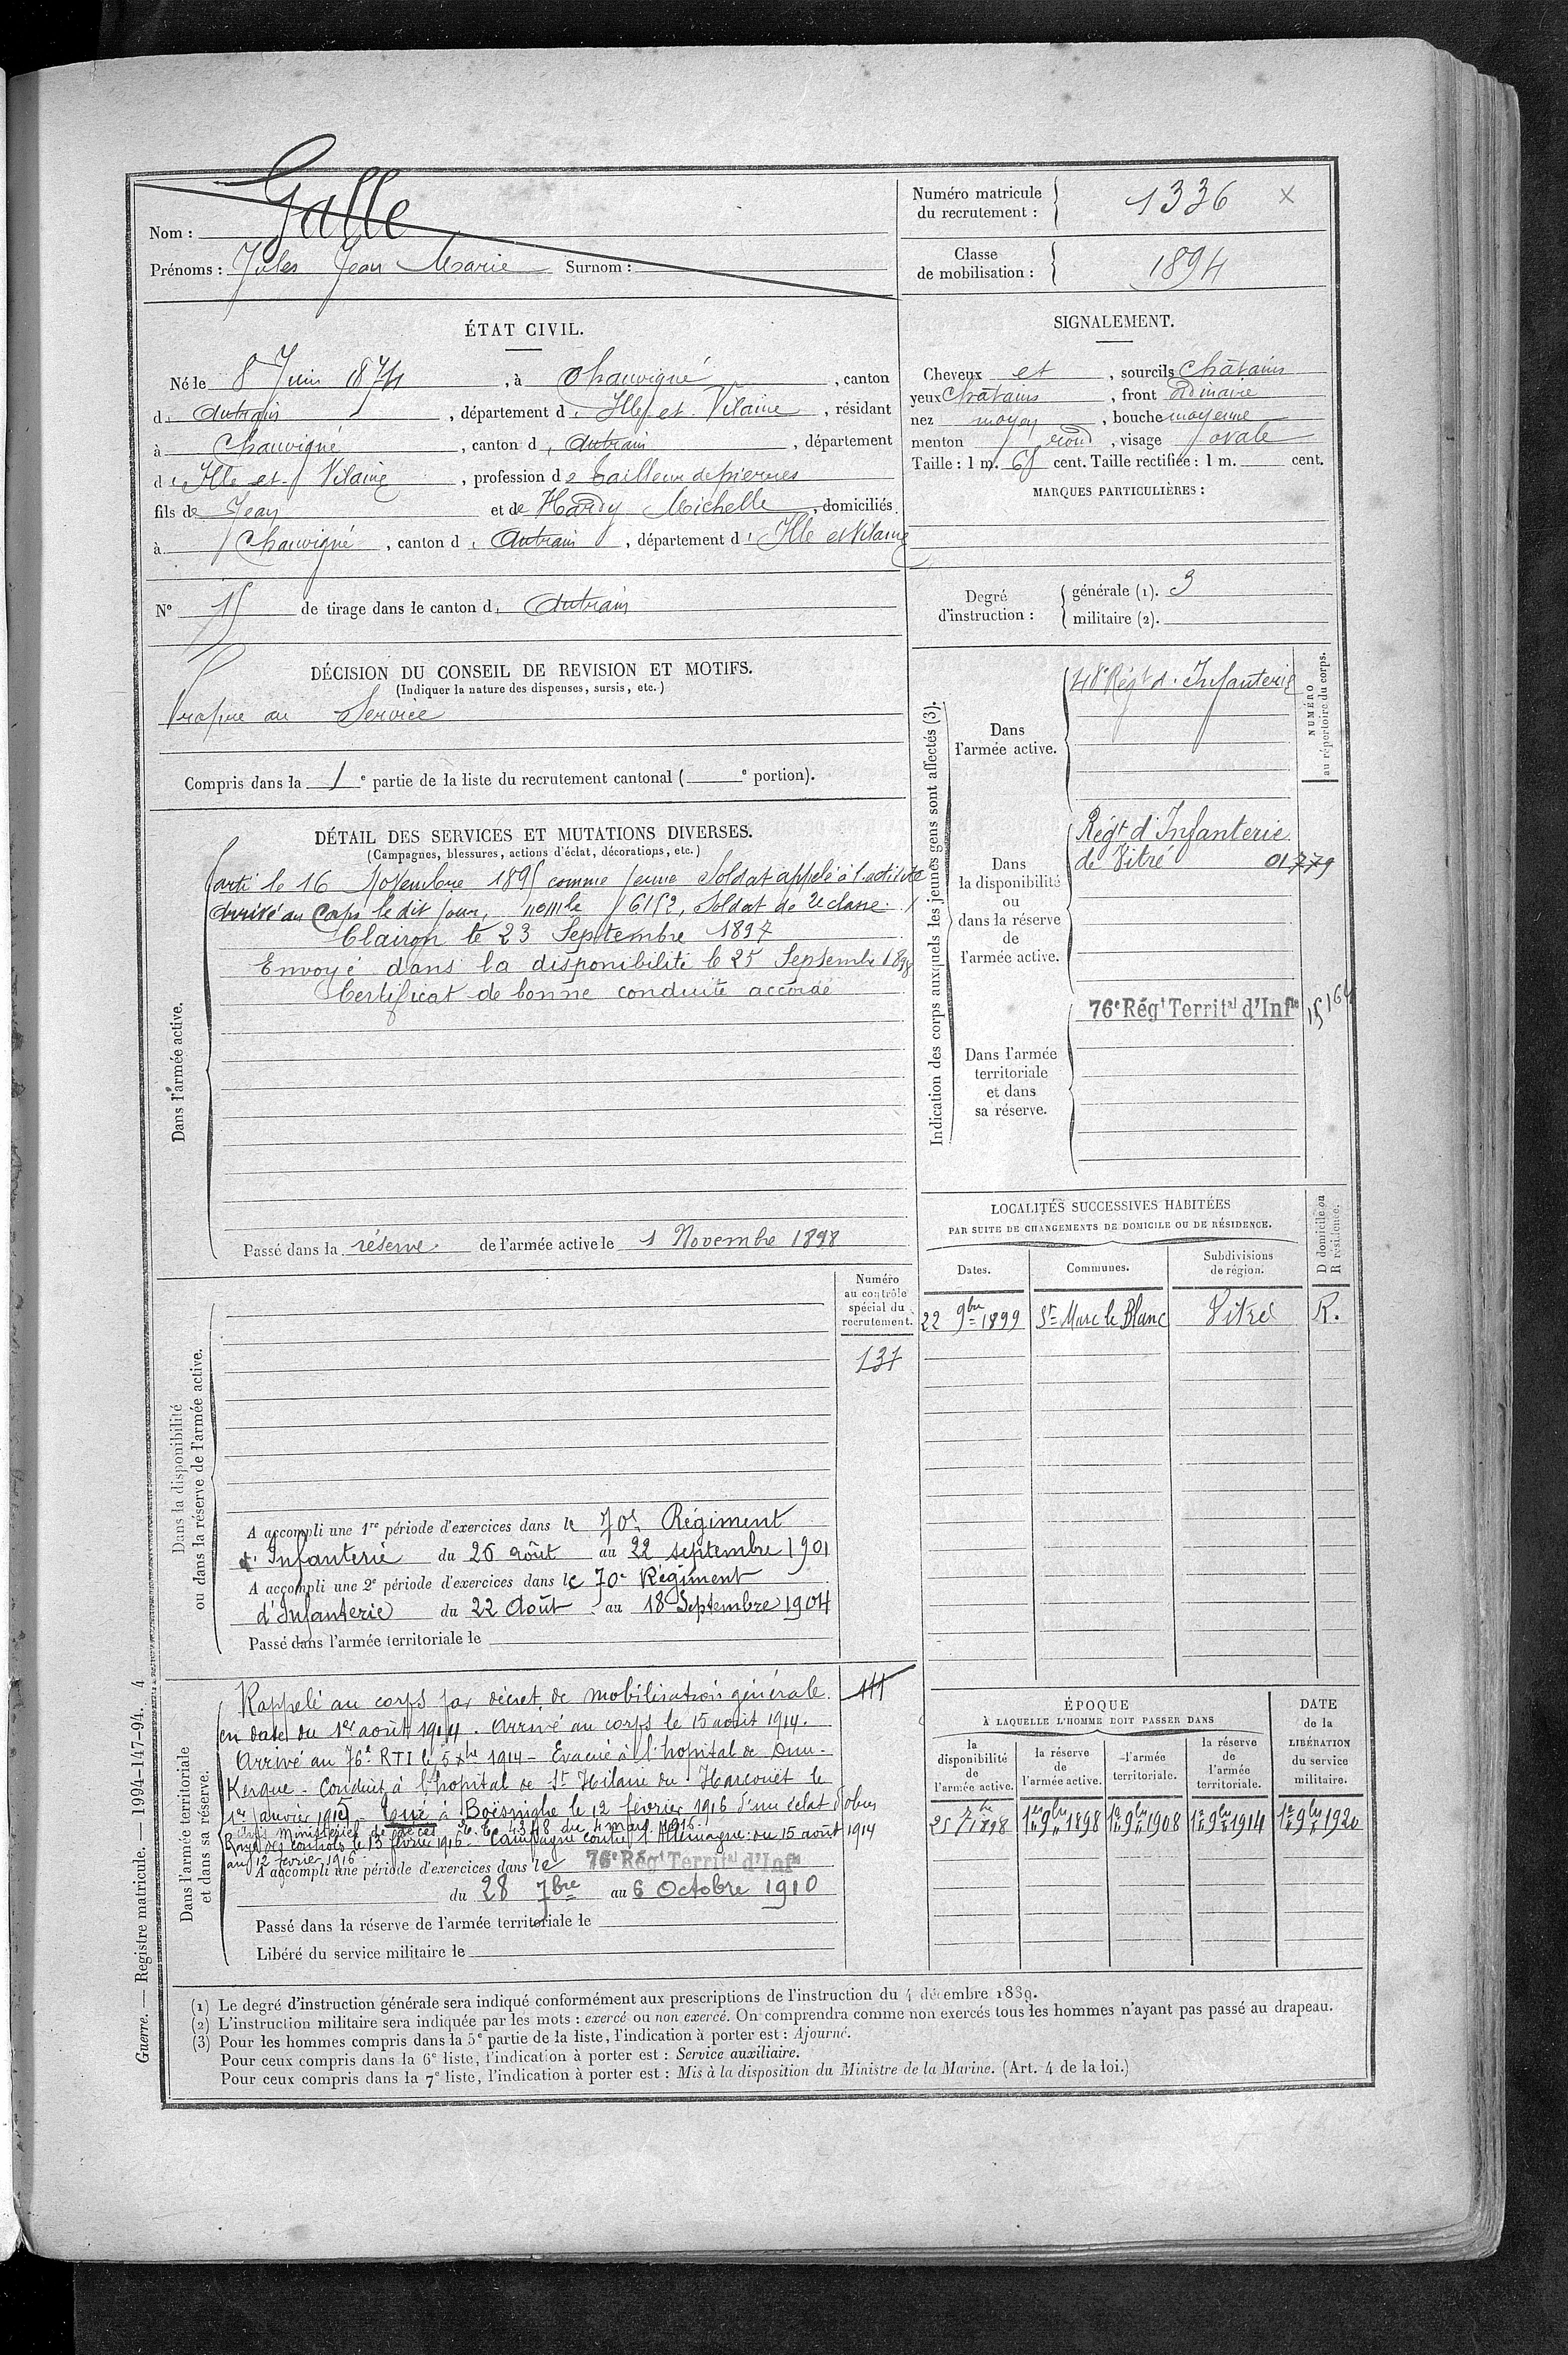 Nom : Galle
Prénoms : Jules Jean Marie Surnom :
Numéro matricule du recrutement : 1336 x
Classe de mobilisation : 1894
ÉTAT CIVIL.
Né le 8 Juin 1874, à Chauvigné, canton
d' Antrain, département d' Ille et Vilaine, résidant
à Chauvigné, canton d' Antrain, département
d' Ille et Vilaine, profession de tailleur de pierres
fils de Jean et de Hardy Michelle, domiciliés
à Chauvigné, canton d' Antrain, département d' Ille et Vilaine
N° 15 de tirage dans le canton d' Antrain
SIGNALEMENT.
Cheveux et, sourcils châtains
yeux châtains, front ordinaire
nez moyen, bouche moyenne
menton rond, visage ovale
Taille : 1 m. 65 cent. Taille rectifiée : 1 m. cent.
MARQUES PARTICULIÈRES :
Degré d'instruction :
générale (1). 3
militaire (2).
DÉCISION DU CONSEIL DE REVISION ET MOTIFS.
(Indiquer la nature des dispenses, sursis, etc.)
Propre au Service
Compris dans la 1e partie de la liste du recrutement cantonal ( e portion).
DÉTAIL DES SERVICES ET MUTATIONS DIVERSES.
(Campagnes, blessures, actions d'éclat, décorations, etc.)
Dans l'armée active.
Parti le 16 Novembre 1895 comme jeune Soldat appelé à l'activité
Arrivé au Corps le dit jour, no mle 6152, Soldat de 2e classe.
Clairon le 23 Septembre 1897
Envoyé dans la disponibilité le 25 Septembre 1898
Certificat de bonne conduite accordé
Passé dans la réserve de l'armée active le 1 Novembre 1898
Indication des corps auxquels les jeunes gens sont affectés (3).
NUMÉRO au répertoire du corps.
Dans l'armée active.
48e Régt d'Infanterie
Dans la disponibilité ou dans la réserve de l'armée active.
Régt d'Infanterie
de Vitré 01779
Dans l'armée territoriale et dans sa réserve.
76e Régt Territal d'Infie 15164
LOCALITÉS SUCCESSIVES HABITÉES
PAR SUITE DE CHANGEMENTS DE DOMICILE OU DE RÉSIDENCE.
Dates. Communes. Subdivisions de région. D domicile ou R résidence.
22 9bre 1899 St Marc le Blanc Vitré R.
Dans la disponibilité ou dans la réserve de l'armée active.
Numéro au contrôle spécial du recrutement.
137
A accompli une 1re période d'exercices dans le 70e Régiment
d'Infanterie du 26 août au 22 septembre 1901
A accompli une 2e période d'exercices dans le 70e Régiment
d'Infanterie du 22 Août au 18 Septembre 1904
Passé dans l'armée territoriale le
Dans l'armée territoriale et dans sa réserve.
Rappelé au corps par décret de mobilisation générale
en date du 1er août 1914. Arrivé au corps le 15 août 1914.
Arrivé au 76e RTI le 5 xbre 1914 - Evacué à l'hopital de Dun-
Kerque - Conduit à l'hopital de St Hilaire du Harcouët le
1er janvier 1915 - Tué à Boësinghe le 12 février 1916 d'un éclat d'obus
avis ministériel de décès 4348 du 4 mars 1916.
Rayé des controles le 13 février 1916 - Campagne contre l'Allemagne : du 15 août 1914
au 12 février 1916
A accompli une période d'exercices dans le 76e Régt Territal d'Infie
du 28 7bre au 6 Octobre 1910
Passé dans la réserve de l'armée territoriale le
Libéré du service militaire le
ÉPOQUE
À LAQUELLE L'HOMME DOIT PASSER DANS
la disponibilité de l'armée active. la réserve de l'armée active. l'armée territoriale. la réserve de l'armée territoriale.
DATE de la LIBÉRATION du service militaire.
25 7bre 1898 1er 9bre 1898 1er 9bre 1908 1er 9bre 1914 1er 9bre 1920
(1) Le degré d'instruction générale sera indiqué conformément aux prescriptions de l'instruction du 4 décembre 1889.
(2) L'instruction militaire sera indiquée par les mots : exercé ou non exercé. On comprendra comme non exercés tous les hommes n'ayant pas passé au drapeau.
(3) Pour les hommes compris dans la 5e partie de la liste, l'indication à porter est : Ajourné.
Pour ceux compris dans la 6e liste, l'indication à porter est : Service auxiliaire.
Pour ceux compris dans la 7e liste, l'indication à porter est : Mis à la disposition du Ministre de la Marine. (Art. 4 de la loi.)
Guerre. — Registre matricule. — 1994-147-94. 4